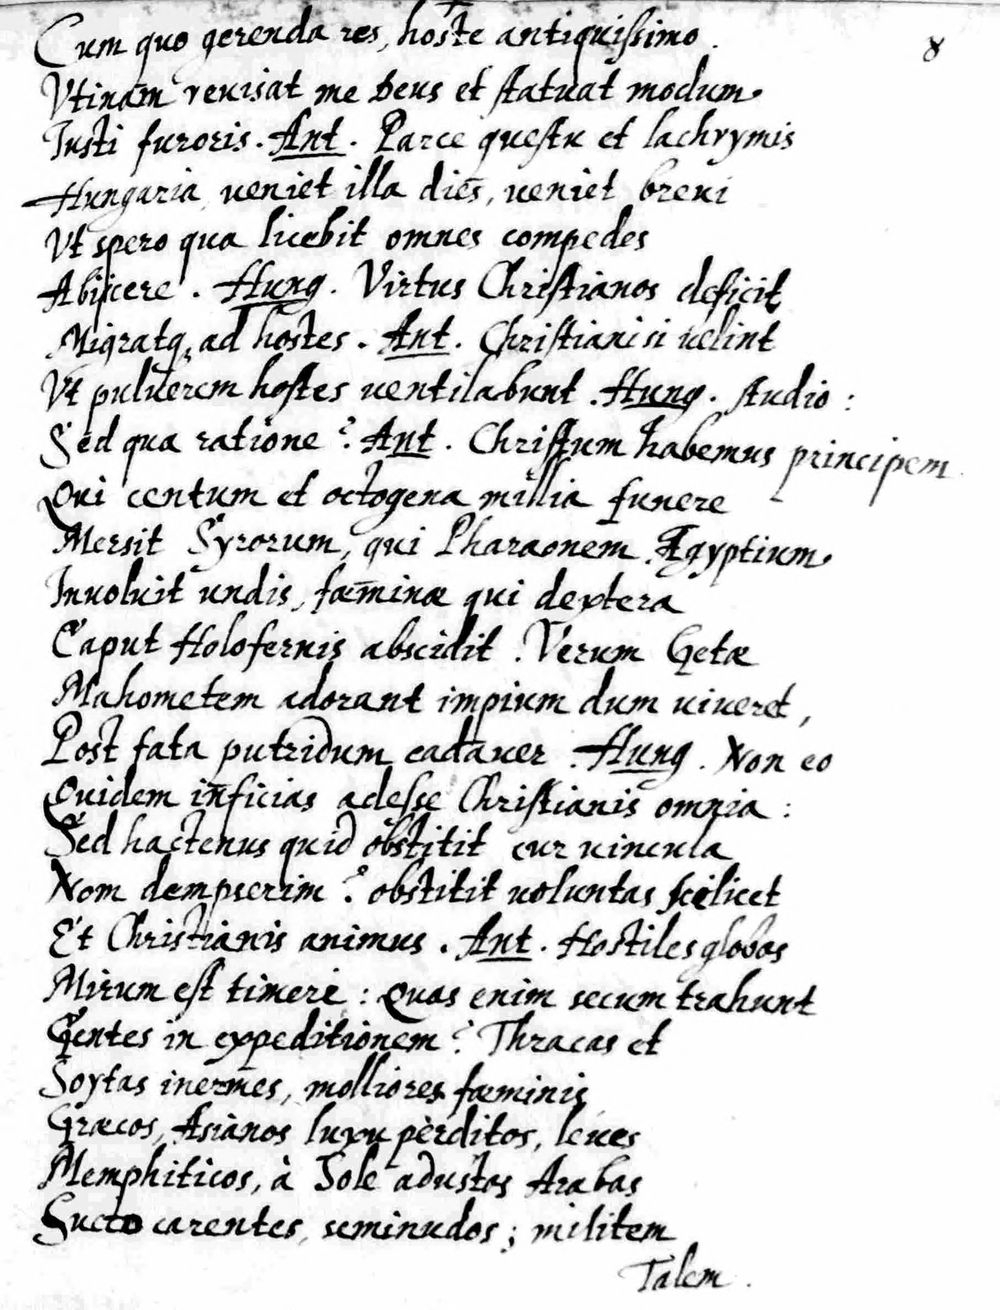 Cum quo gerenda res, hoste antiquissimo.
8
Vtinam reuisat me Deus et statuat modum.
Iusti furoris. Ant. Parce questu et lachrymis
Hungaria, ueniet illa dies, ueniet breui
Vt spero qua licebit omnes compedes
Abijcere. Hung. Virtus Christianos deficit
Migratq, ad hostes. Ant. Christiani si uelint
Vt puluerem hostes uentilabunt. Hung. Audio:
Sed qua ratione? Ant. Christum habemus principem
Qui centum et octogena millia funere
Mersit Syrorum, qui Pharaonem Ægyptium.
Inuoluit undis, fœminæ qui dextera
Caput Holofernis abscidit. Verum Getæ
Mahometem adorant impium dum uiueret,
Post fata putridum cadauer. Hung. Non eo
Quidem inficias adesse Christianis omnia:
Sed hactenus quid obstitit cur uincula
Nom dempserim? obstitit uoluntas scilicet
Et Christianis animus. Ant. Hostiles globos
Mirum est timeri: Quas enim secum trahunt
Gentes in expeditionem? Thracas et
Scytas inermes, molliores fœminis
Græcos, Asianos luxu pèrditos, leues
Memphiticos, à Sole adustos Arabas
Sucto carentes, seminudos; militem
Talem.